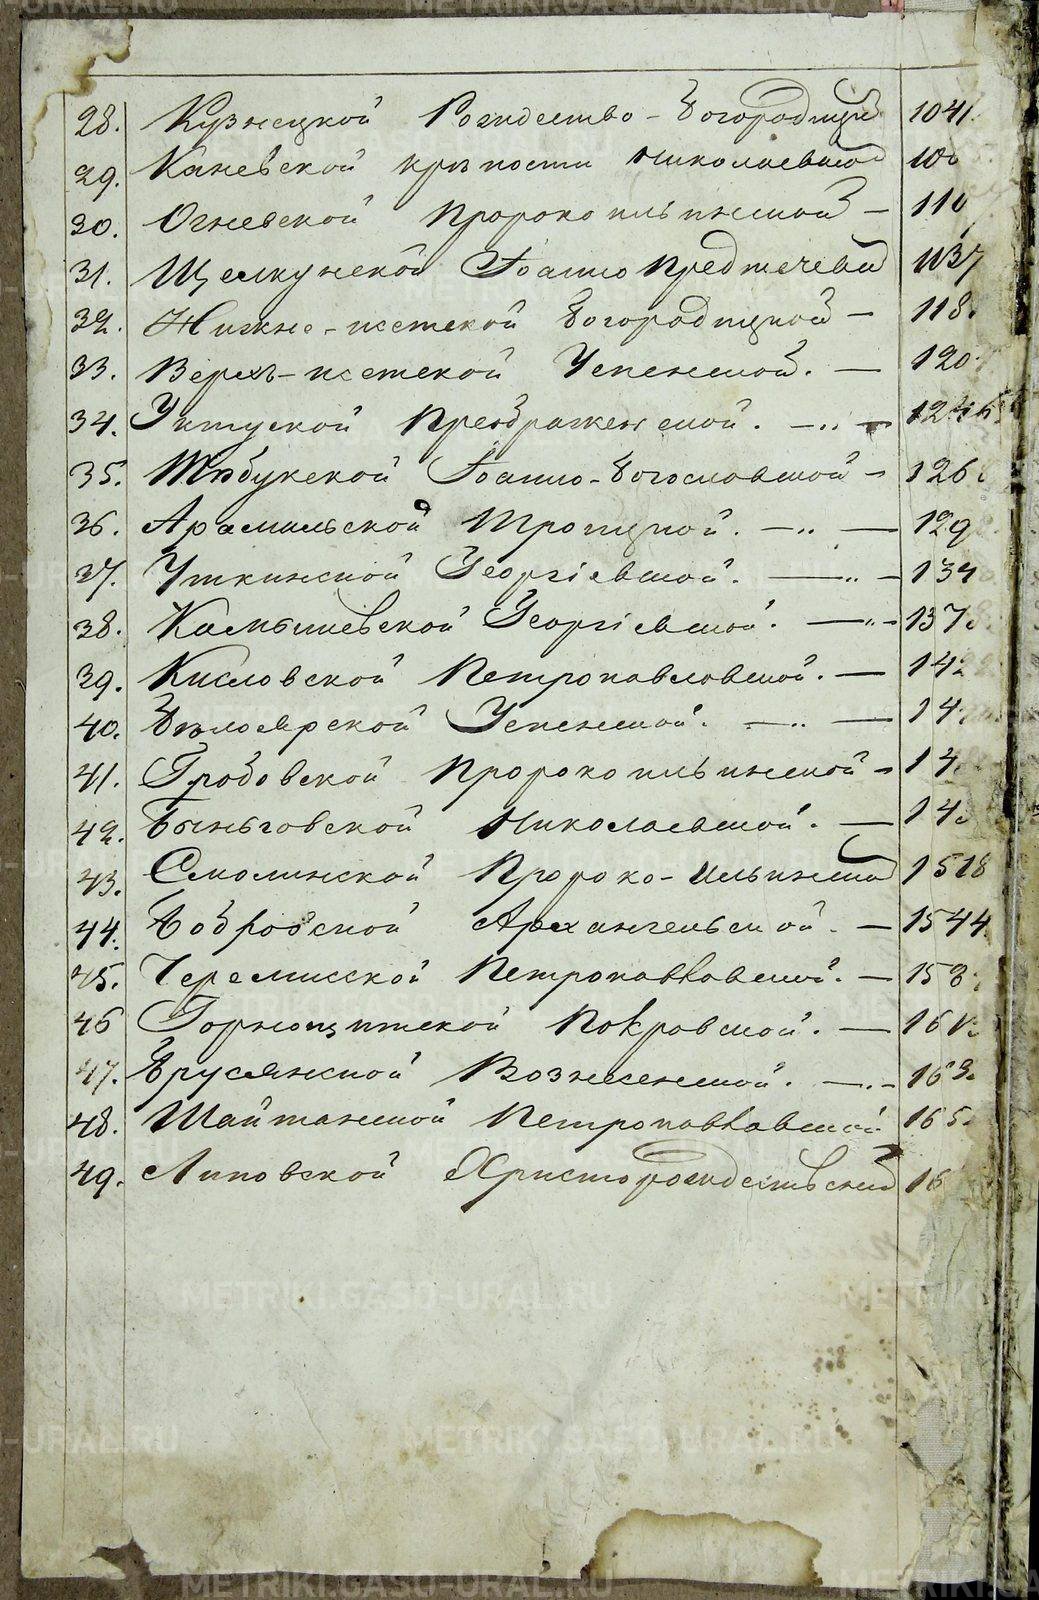 28. Кузнецкой Рождество-Богородицк 1041
29. Каневской крѣпости Николаевской
30. Огневской Пророкоильинской — 110
31. Щелкунской Іоанно Предтечевй 1137
32. Нижне-исетской Богородицкой — 118
33. Верхъ-исетской Успенской. — 120
34. Уктуской Преображенской. —
35. Табукской Іоанно-Богословской — 126
36. Арамильской Троицкой. — 129
37. Уткинской Георгіевской. — 134
38. Камышевской Георгіевской. — 137
39. Кисловской Петропавловской. — 14
40. Бѣлоярской Успенской. — 14
41. Гробовской Пророкоильинской — 14
42. Быньговской Николаевской. — 14
43. Смолинской Пророко-Ильинской 1518
44. Бобровской Архангельской. — 1544
45. Черемисской Петропавловской. — 153
46 Горнощитской Покровской. — 161
47. Брусянской Вознесенской. — 163
48. Шайтанской Петропавловской 165
49. Липовской Христорождественской 16
METRIKI.GASO-URAL.RU